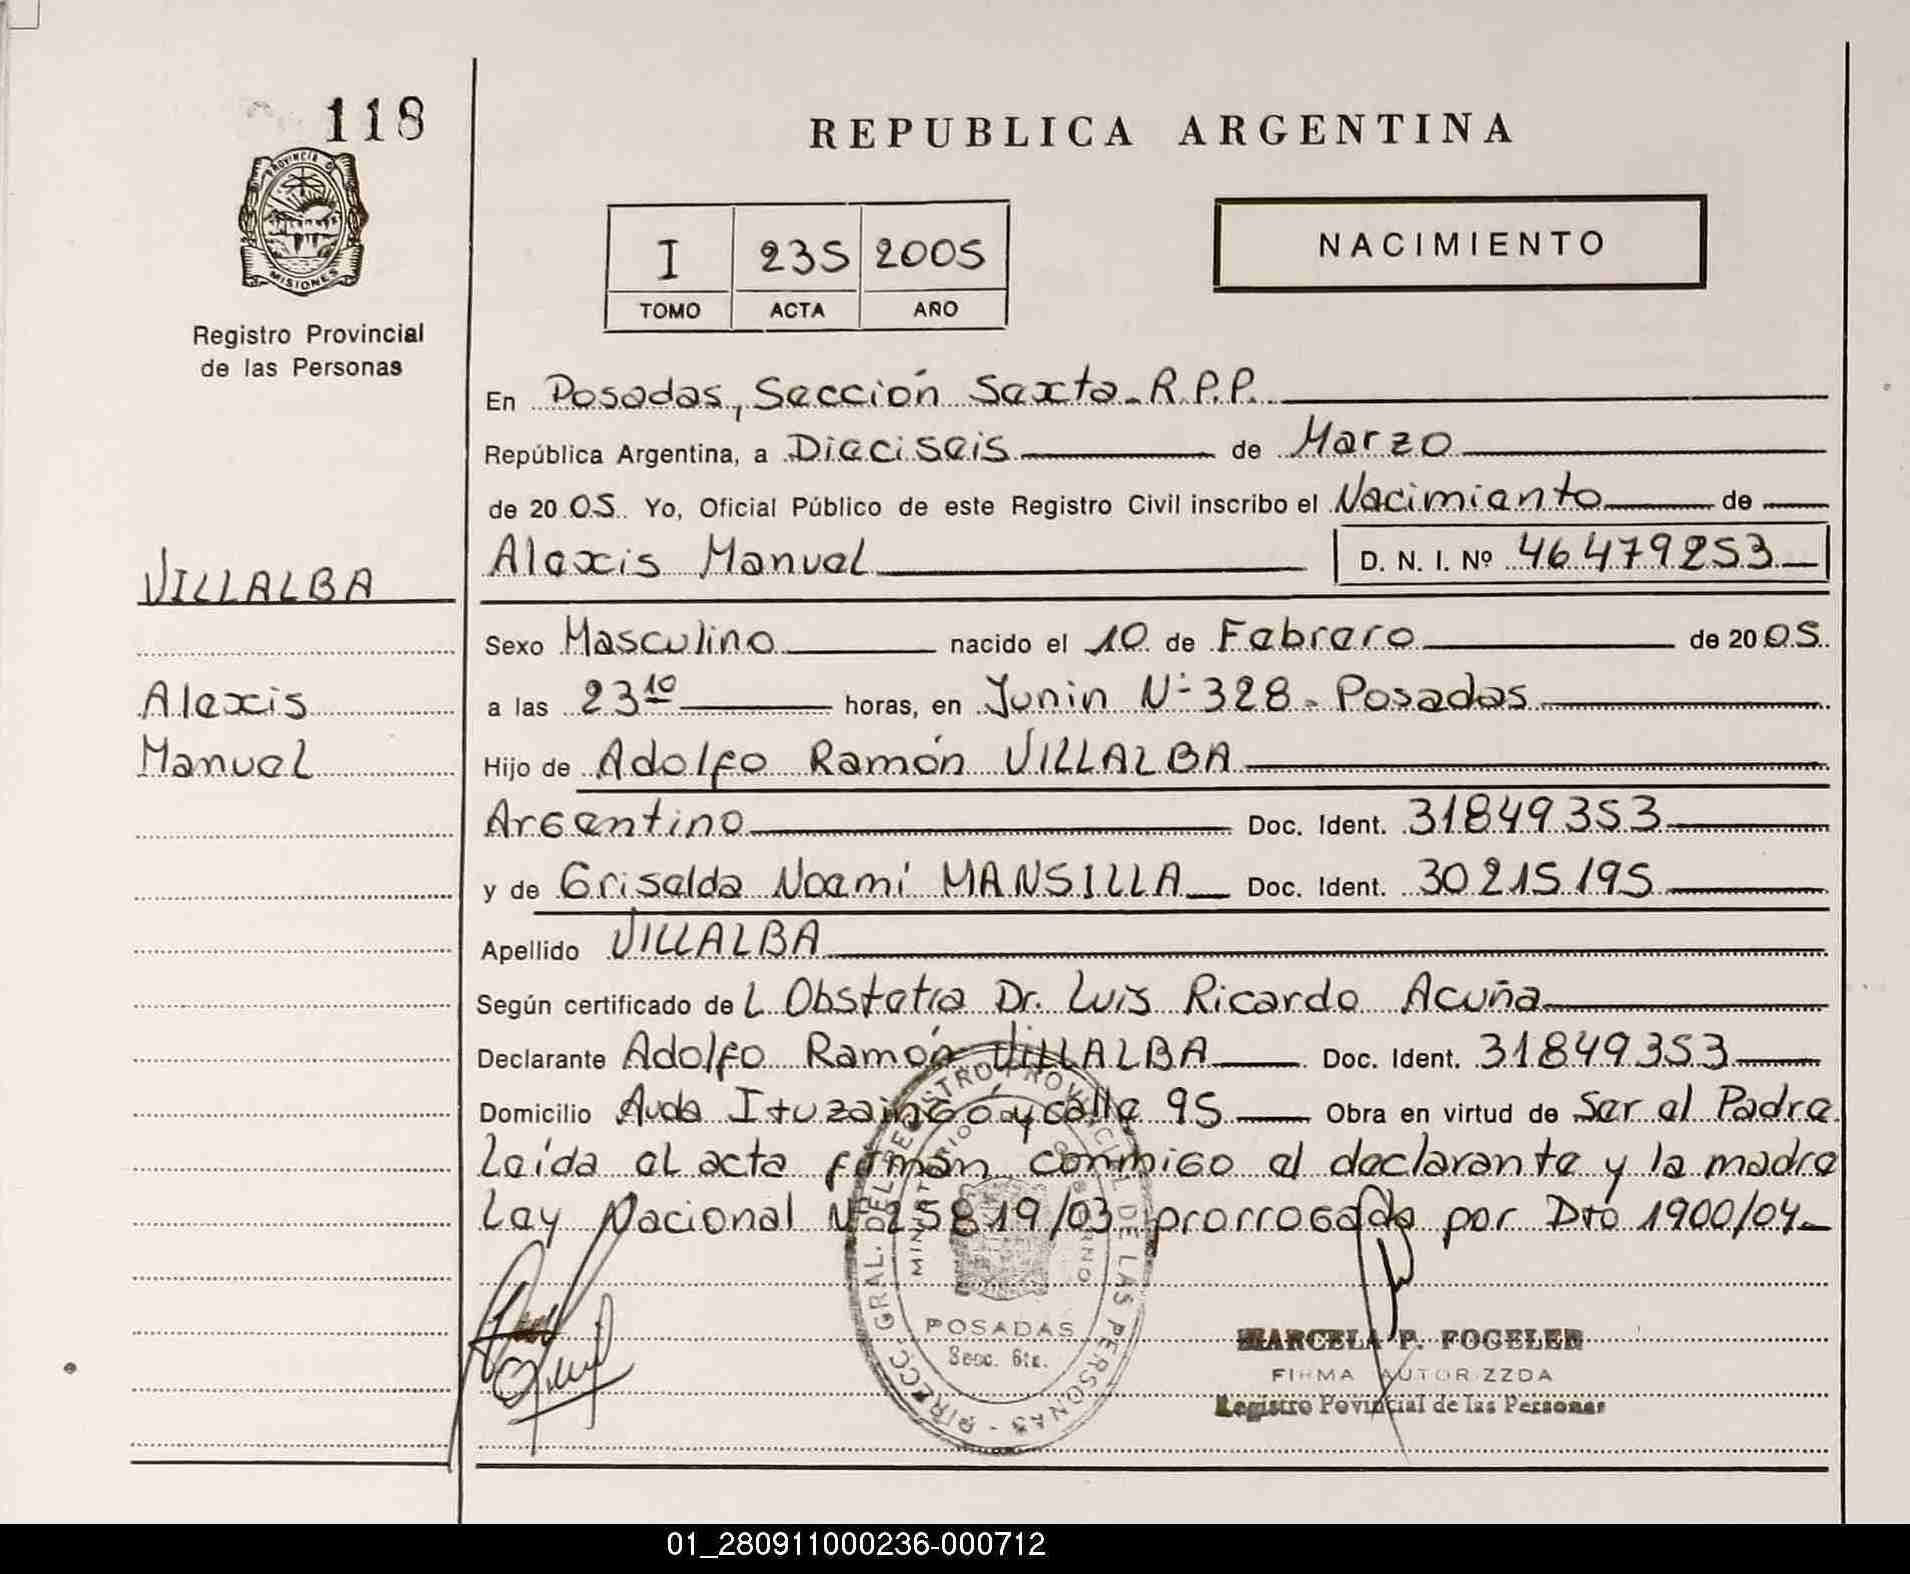 118
PROVINCIA D
MISIONES
Registro Provincial
de las Personas
REPUBLICA ARGENTINA
I 235 2005
TOMO ACTA AÑO
NACIMIENTO
En Posadas, Sección Sexta. R.P.P.
República Argentina, a Dieciseis de Marzo
de 20 05. Yo, Oficial Público de este Registro Civil inscribo el Nacimiento de
Alexis Manuel D. N. I. Nº 46.479253
VILLALBA
Sexo Masculino nacido el 10 de Febrero de 20 05.
Alexis
a las 23¹⁰ horas, en Junin Nº 328. Posadas
Manuel
Hijo de Adolfo Ramón VILLALBA
Argentino Doc. Ident. 31849353
y de Griselda Noemí MANSILLA Doc. Ident. 30215195
Apellido VILLALBA
Según certificado de L Obstetra Dr. Luis Ricardo Acuña
Declarante Adolfo Ramón VILLALBA Doc. Ident. 31849353
Domicilio Avda Ituzaingó y calle 95 Obra en virtud de Ser el Padre
Leída el acta firman conmigo el declarante y la madre
Ley Nacional Nº 25819/03 prorrogada por Dto 1900/04
DIRECC. GRAL. DEL REGISTRO PROVINCIAL DE LAS PERSONAS
MINISTERIO GOBIERNO
POSADAS
Secc. 6ta.
MARCELA P. FOGELER
FIRMA AUTORIZZDA
Registro Povincial de las Personas
01_280911000236-000712